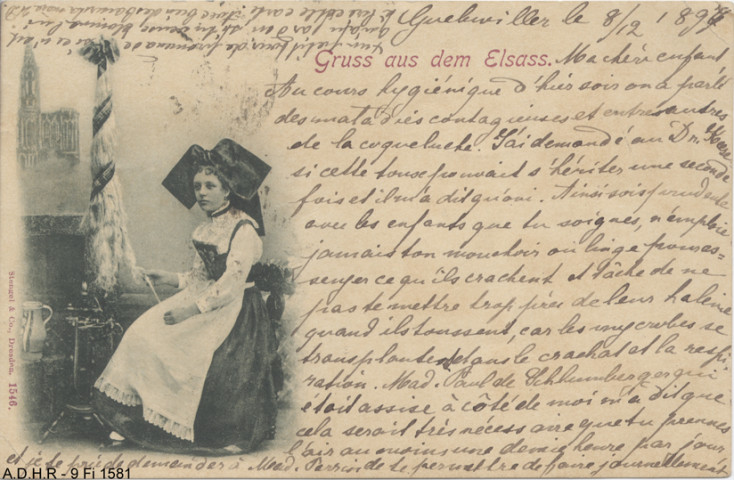 Guebwiller le 8/12 1899
Gruss aus dem Elsass.
Ma chère enfant
Au cours hygiénique d'hier soir on a parlé
des maladies contagieuses et entre autres
de la coqueluche. J'ai demandé au Dr.
si cette toux pouvait s'hériter une seconde
fois et il m'a dit qu'oui. Ainsi sois prudente
avec les enfants que tu soignes, n'emploie
jamais ton mouchoir ou linge pour es-
suyer ce qu'ils crachent et tâche de ne
pas te mettre trop près de leur haleine
quand ils toussent, car les microbes se
transplantent dans le crachat et la respi
ration. Mad. Paul de Schlumberger qui
était assise à côté de moi m'a dit que
cela serait très nécessaire que tu prennes
l'air au moins une demie heure par jour
et je te prie de demander à Mad. Perrin de te permettre de faire journellement
un petit tour de promenade
si ce n'est
Stengel & Co., Dresden. 1546.
A.D.H.R - 9 Fi 1581